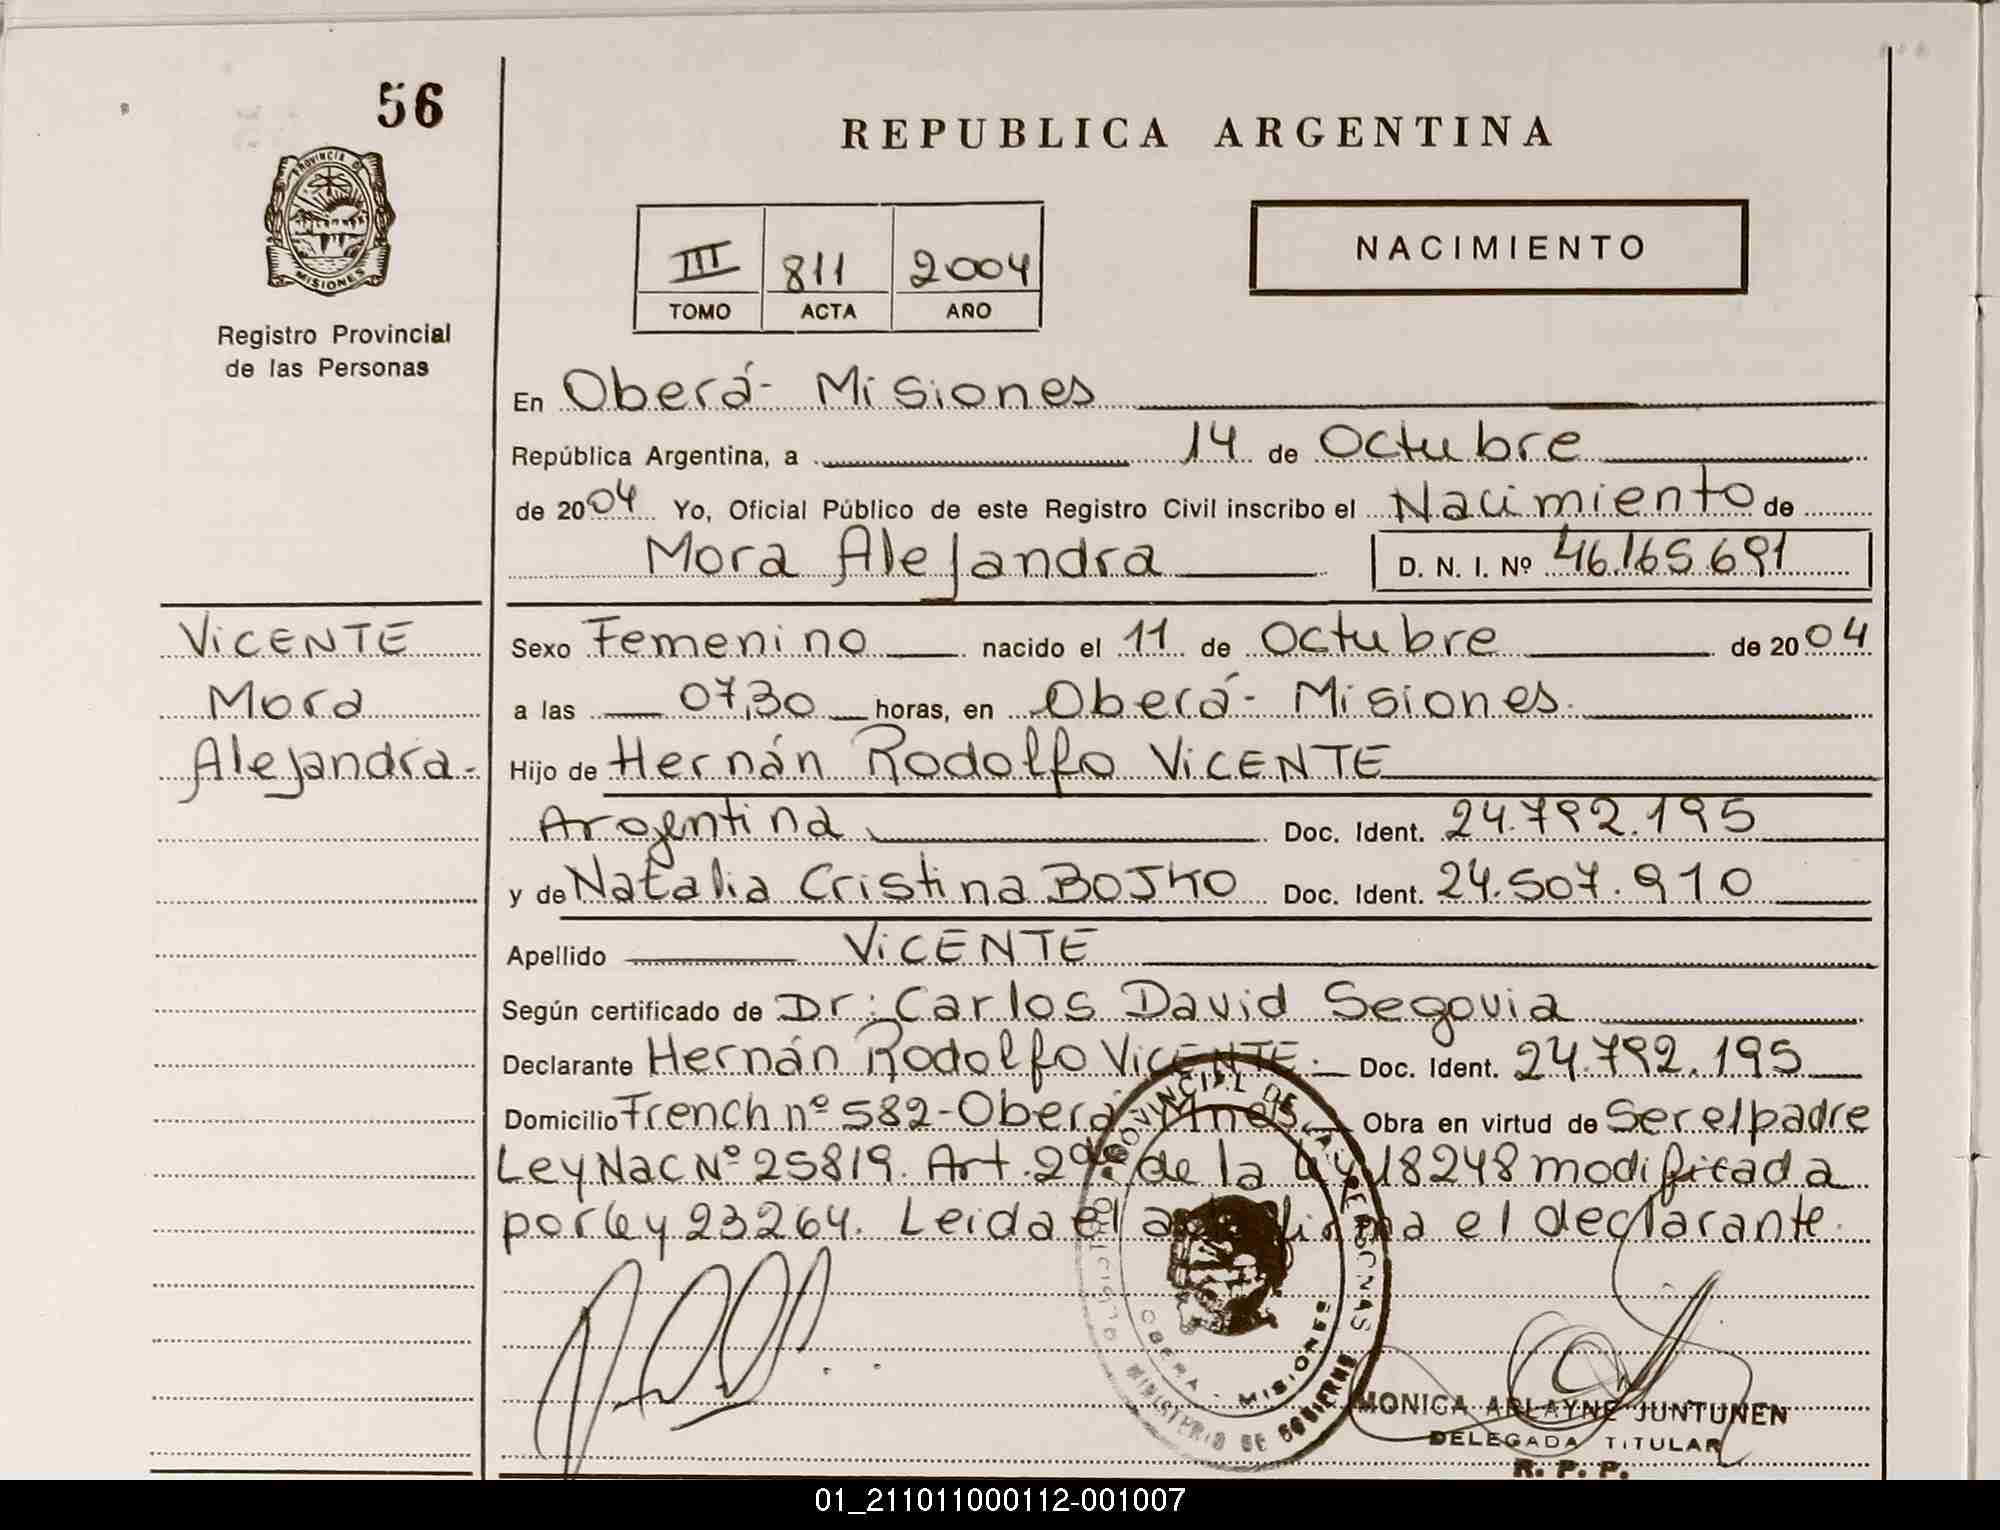 56
REPUBLICA ARGENTINA
PROVINCIA D
MISIONES
Registro Provincial
de las Personas
NACIMIENTO
III 811 2004
TOMO ACTA AÑO
En Oberá- Misiones
República Argentina, a 14 de Octubre
de 2004 Yo, Oficial Público de este Registro Civil inscribo el Nacimiento de
Mora Alejandra D. N. I. Nº 46.165.691
VICENTE
Mora
Alejandra-
Sexo Femenino nacido el 11 de Octubre de 2004
a las 07,30 horas, en Oberá- Misiones.
Hijo de Hernán Rodolfo VICENTE
Argentina Doc. Ident. 24.792.195
y de Natalia Cristina BOJKO Doc. Ident. 24.507.910
Apellido VICENTE
Según certificado de Dr: Carlos David Segovia
Declarante Hernán Rodolfo VICENTE.- Doc. Ident. 24.792.195
Domicilio French nº 582-Oberá Mnes. Obra en virtud de Ser el padre
Ley Nac Nº 25819. Art. 2do de la Ley 18248 modificada
por ley 23264. Leida el acta firma el declarante.
PROVINCIAL DE LAS PERSONAS
OBERA - MISIONES
MINISTERIO DE GOBIERNO
MONICA ARLAYNE JUNTUNEN
DELEGADA TITULAR
R. P. P.
01_211011000112-001007